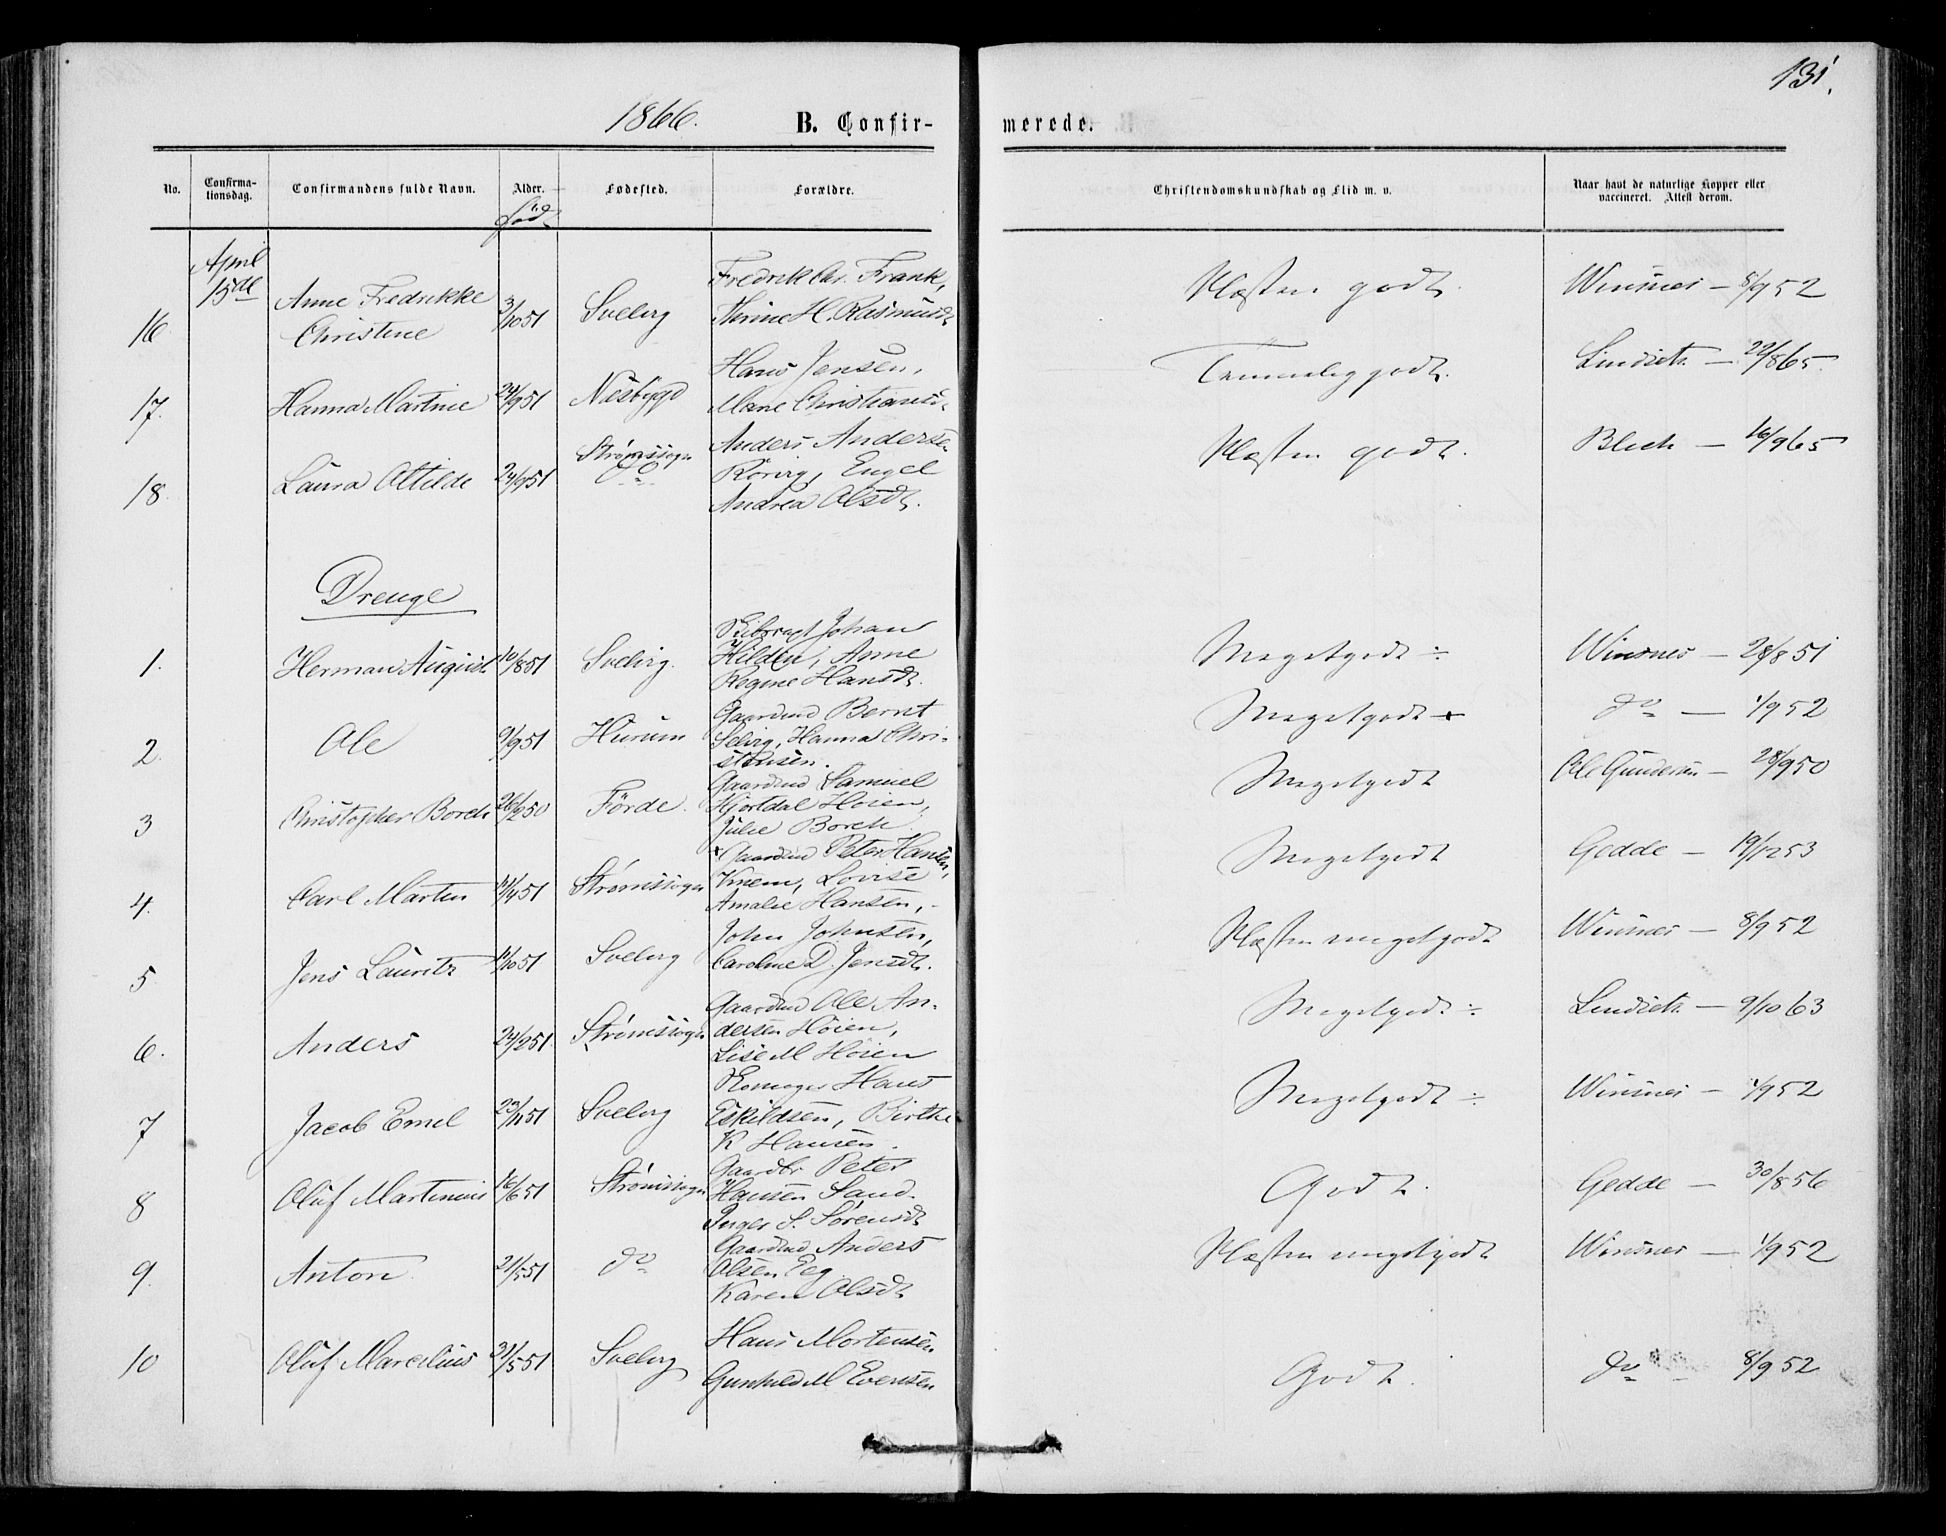 131.
1866. B. Confir- merede.
No. Confirmationsdag. Confirmandens fulde Navn. Alder. Fødested. Forældre. Christendomskundskab og Flid m. v. Naar havt de naturlige Kopper eller vaccineret. Attest derom.
fød
April 15de
16. Anne Fredrikke Christine 3/10 51 Svelvig Fredrik Chr. Frank, Thrine H. Rasmusdt Næsten godt. Winsnes — 8/9 52
17. Hanna Martine 24/9 51 Nesbygd Hans Jensen, Maren Christiansd. Temmelig godt. Lindseth — 22/8 65.
18. Laura Otilde 24/9 51 Strømssogn do Anders Andersen Rörvig, Engel Andrea Olsdt. Næsten godt. Blich — 16/9 65
Drenge
1. Herman August 10/8 51 Svelvig. Johan Hilden, Anne Regine Hansdt. Megetgodt ÷ Winsnes — 28/8 51
2. Ole 9/9 51 Hurum Gaardmd Bernt Selvig, Hanna Christensen. Megetgodt + do — 1/9 52
3 Christopher Borch 26/2 50 Förde. Gaardmd Samuel Hjortdal Høien, Julie Borch Megetgodt Ole Gunderson — 28/9 50
4. Carl Martin 11/4 51 Strømssogn Gaardmd Peter Hansen, Knem, Lovise Amalie Hansen, Megetgodt Gedde — 19/12 53
5 Jens Lauritz 1/10 51 Svelvig John Johnsen, Caroline D. Jensdt. Næsten megetgodt Winsnes — 8/9 52
6. Anders 24/2 51. Strømssogn Gaardmd Ole Andersen Høien, Lise M Høien Megetgodt ÷ Lindseth — 9/10 63
7 Jacob Emil 23/11 51 Svelvig Skomager Hans Eskildsen, Birthe K Hansen. Megetgodt ÷ Winsnes — 1/9 52
8 Oluf Martinius 16/6 51 Strømssogn Gaardbr Peter Hansen Sand. Inger S. Sørensdt Godt. Gedde — 30/8 56
9. Anton 21/5 51 do Gaardmd Anders Olsen Eeg Karen Olsdt Næsten megetgodt Winsnes — 1/9 52
10 Oluf Marcelius 31/5 51 Svelvig Hans Mortensen Gunhild M Evensen Godt. do 8/9 52